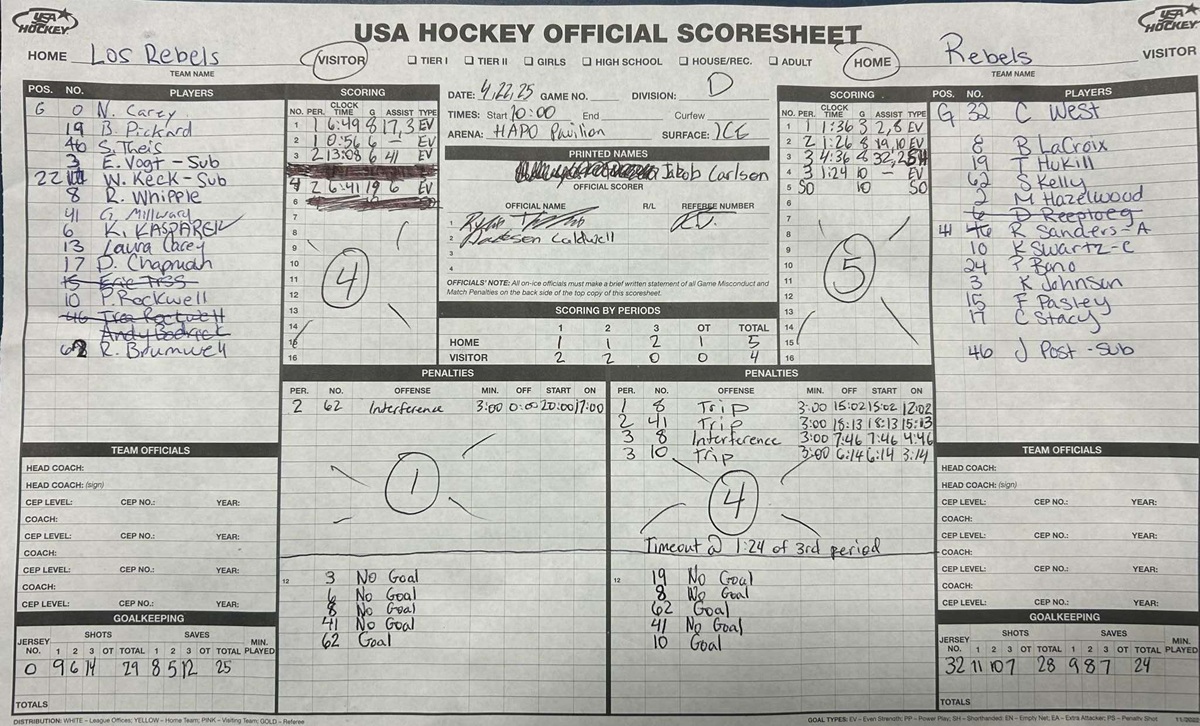 USA HOCKEY
USA HOCKEY OFFICIAL SCORESHEET
USA HOCKEY
HOME Los Rebels VISITOR
TEAM NAME
TIER I TIER II GIRLS HIGH SCHOOL HOUSE/REC. ADULT
HOME Rebels VISITOR
TEAM NAME
POS. NO. PLAYERS
G 0 N. Carey
19 B. Pickard
46 S. Theis
3 E. Vogt - Sub
22 W. Keck - Sub
8 R. Whipple
41 G. Millward
6 K. KASPAREK
13 Laura Carey
17 D. Chapman
15
10 P. Rockwell
46 Rockwell
Andy
62 R. Brumwell
SCORING
NO. PER. CLOCK TIME G ASSIST TYPE
1 1 6:49 8 17,3 EV
2 1 0:56 6 - EV
3 2 13:08 6 41 EV
4 2 6:41 19 6 EV
6
7
8
9
10
11
12
13
14
15
16
4
DATE: 4,22,25 GAME NO. DIVISION: D
TIMES: Start 10:00 End Curfew
ARENA: HAPO Pavilion SURFACE: ICE
PRINTED NAMES
Jakob Carlson
OFFICIAL SCORER
OFFICIAL NAME R/L REFEREE NUMBER
1 Ryan
2 Jacksen Caldwell
3
4
OFFICIALS' NOTE: All on-ice officials must make a brief written statement of all Game Misconduct and
Match Penalties on the back side of the top copy of this scoresheet.
SCORING BY PERIODS
1 2 3 OT TOTAL
HOME 1 1 2 1 5
VISITOR 2 2 0 0 4
SCORING
NO. PER. CLOCK TIME G ASSIST TYPE
1 1 1:36 3 2,8 EV
2 2 1:26 8 19,10 EV
3 3 4:36 8 32,2 SH
4 3 1:24 10 - EV
5 SO 10 SO
6
7
8
9
10
11
12
13
14
15
16
5
POS. NO. PLAYERS
G 32 C West
8 B LaCroix
19 T Hukill
62 S Kelly
2 M Hazelwood
6 D Reeploeg
41 46 R Sanders - A
10 K Swartz - C
24 P Bono
3 K Johnson
15 F Pasley
17 C Stacy
46 J Post - Sub
PENALTIES
PER. NO. OFFENSE MIN. OFF START ON
2 62 Interference 3:00 0:00 20:00 17:00
1
12
3 No Goal
6 No Goal
8 No Goal
41 No Goal
62 Goal
PENALTIES
PER. NO. OFFENSE MIN. OFF START ON
1 8 Trip 3:00 15:02 15:02 12:02
2 41 Trip 3:00 18:13 18:13 15:13
3 8 Interference 3:00 7:46 7:46 4:46
3 10 Trip 3:00 6:14 6:14 3:14
4
Timeout @ 1:24 of 3rd period
12
19 No Goal
8 No Goal
62 Goal
41 No Goal
10 Goal
TEAM OFFICIALS
HEAD COACH:
HEAD COACH: (sign)
CEP LEVEL: CEP NO.: YEAR:
COACH:
CEP LEVEL: CEP NO.: YEAR:
COACH:
CEP LEVEL: CEP NO.: YEAR:
COACH:
CEP LEVEL: CEP NO.: YEAR:
GOALKEEPING
JERSEY NO. SHOTS SAVES MIN. PLAYED
1 2 3 OT TOTAL 1 2 3 OT TOTAL
0 9 6 14 29 8 5 12 25
TOTALS
TEAM OFFICIALS
HEAD COACH:
HEAD COACH: (sign)
CEP LEVEL: CEP NO.: YEAR:
COACH:
CEP LEVEL: CEP NO.: YEAR:
COACH:
CEP LEVEL: CEP NO.: YEAR:
COACH:
CEP LEVEL: CEP NO.: YEAR:
GOALKEEPING
JERSEY NO. SHOTS SAVES MIN. PLAYED
1 2 3 OT TOTAL 1 2 3 OT TOTAL
32 11 10 7 28 9 8 7 24
TOTALS
DISTRIBUTION: WHITE – League Offices; YELLOW – Home Team; PINK – Visiting Team; GOLD – Referee
GOAL TYPES: EV – Even Strength; PP – Power Play; SH – Shorthanded; EN – Empty Net; EA – Extra Attacker; PS – Penalty Shot